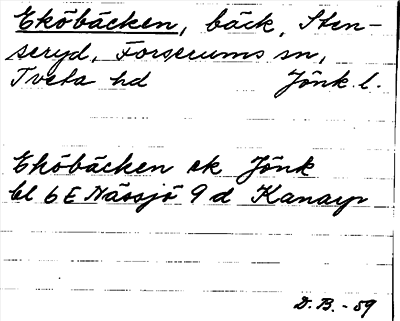 Eköbäcken, bäck, Sten-
seryd, Forserums sn,
Tveta hd Jönk. l.
Eköbäcken ek Jönk
bl 6 E Nässjö 9 d
D. B. - 59